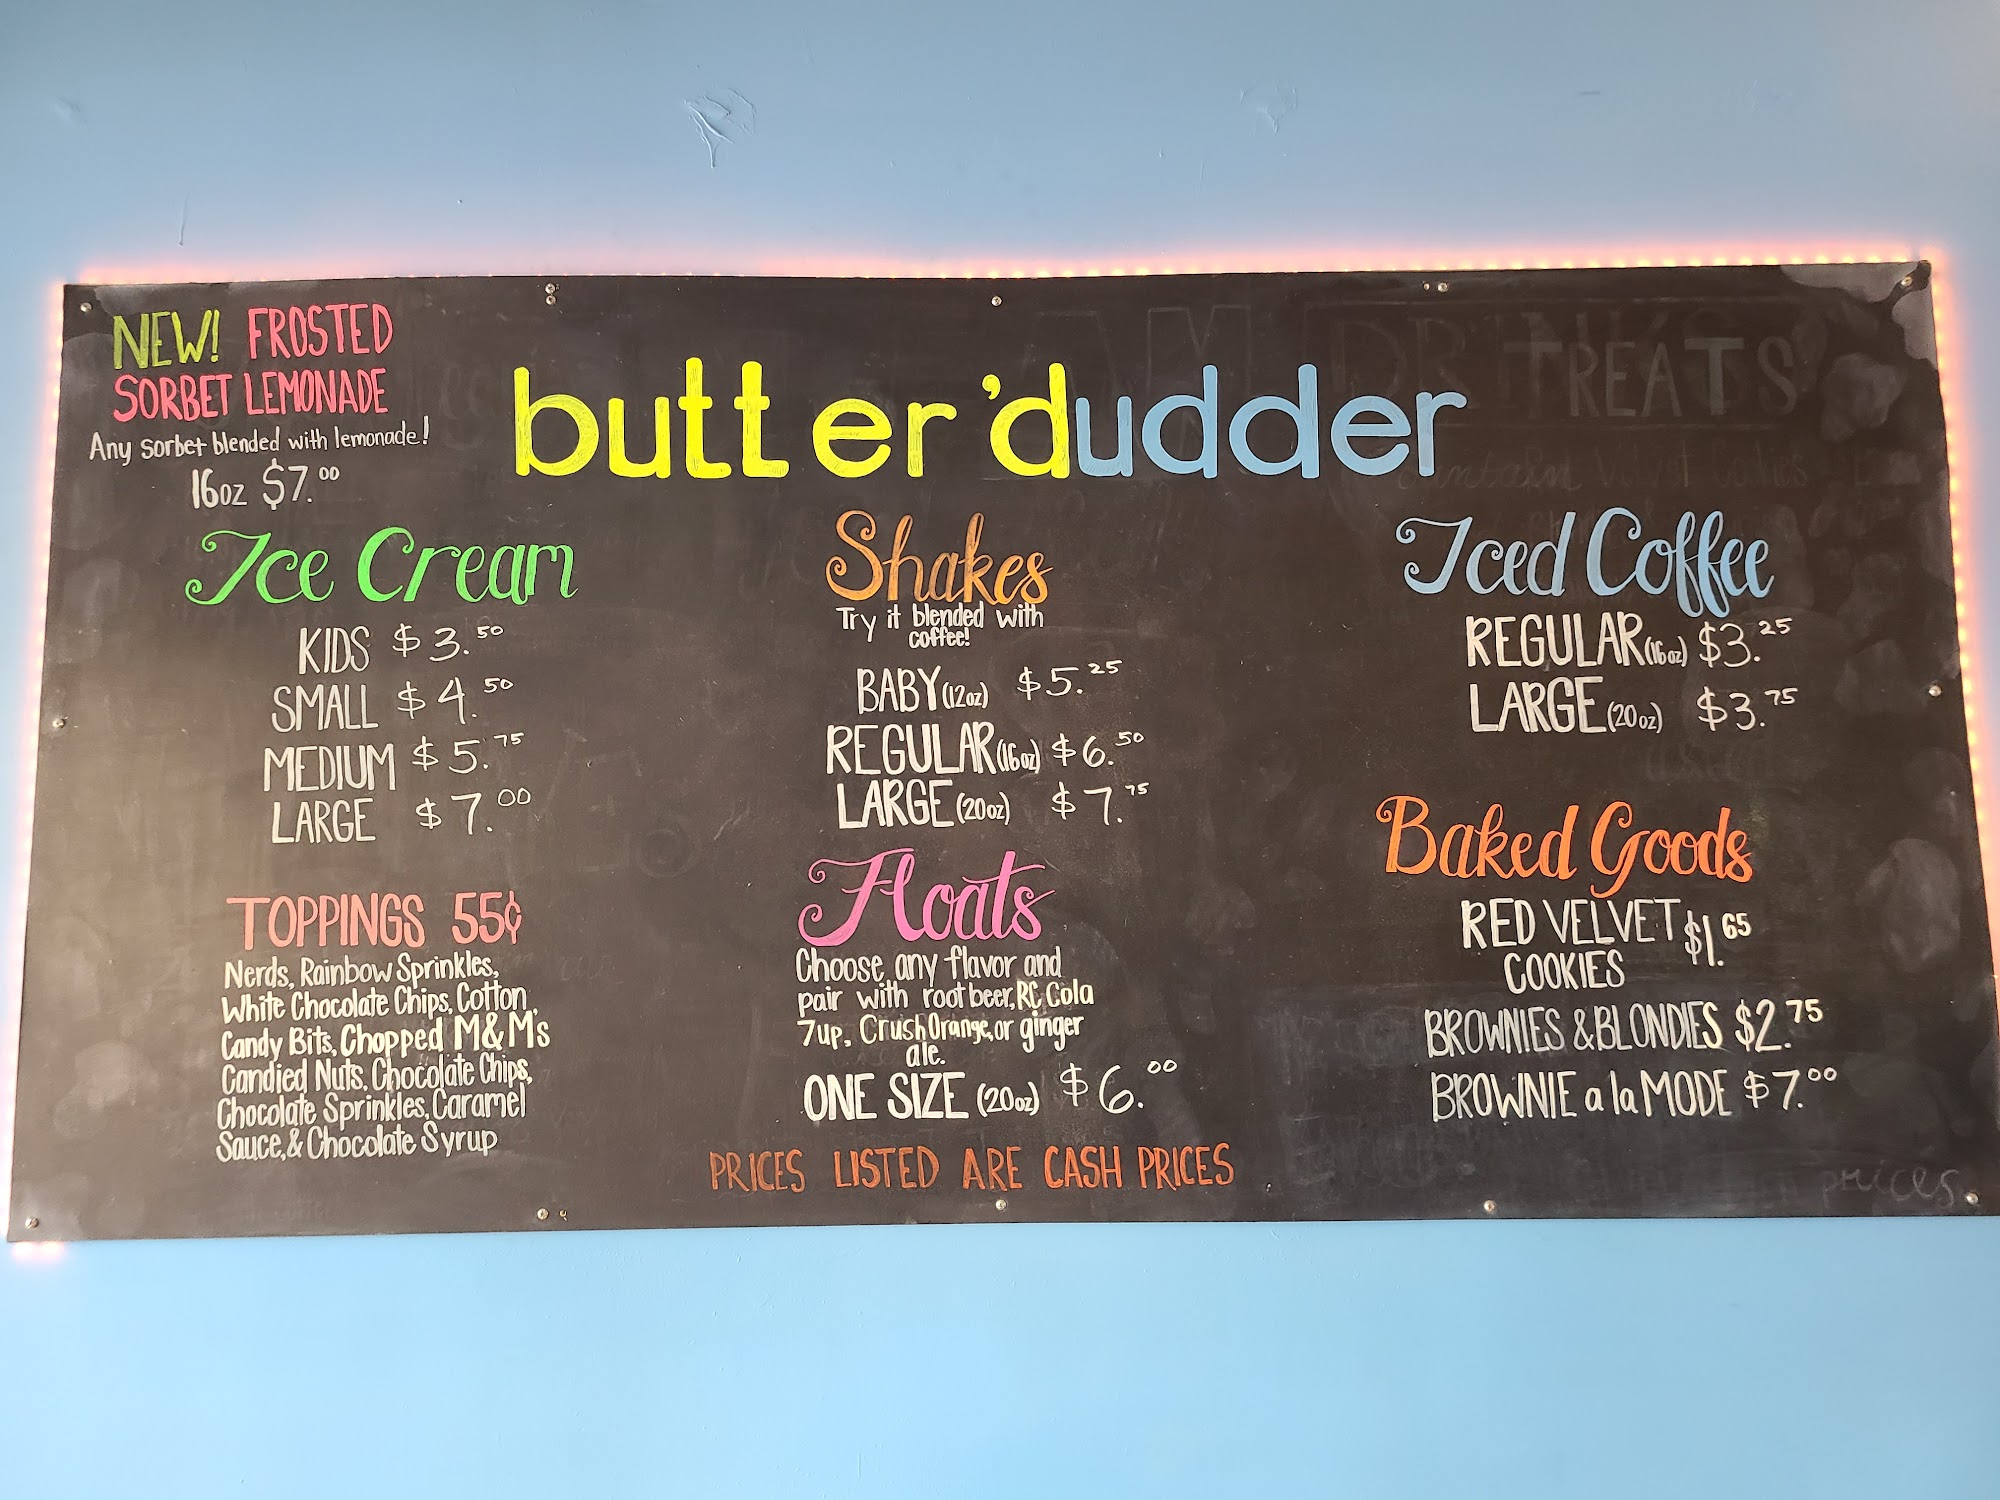 NEW! FROSTED
SORBET LEMONADE
Any sorbet blended with lemonade!
16oz $7.00
butter'dudder
Ice Cream
KIDS $3.50
SMALL $4.50
MEDIUM $5.75
LARGE $7.00
TOPPINGS 55¢
Nerds, Rainbow Sprinkles,
White Chocolate Chips, Cotton
Candy Bits, Chopped M&M's
Candied Nuts, Chocolate Chips,
Chocolate Sprinkles, Caramel
Sauce, & Chocolate Syrup
Shakes
Try it blended with
coffee!
BABY (12oz) $5.25
REGULAR (16oz) $6.50
LARGE (20oz) $7.75
Floats
Choose any flavor and
pair with root beer, RC Cola
7up, Crush Orange, or ginger
ale.
ONE SIZE (20oz) $6.00
PRICES LISTED ARE CASH PRICES
TREATS
Iced Coffee
REGULAR (16oz) $3.25
LARGE (20oz) $3.75
Baked Goods
RED VELVET $1.65
COOKIES
BROWNIES & BLONDIES $2.75
BROWNIE a la MODE $7.00
prices